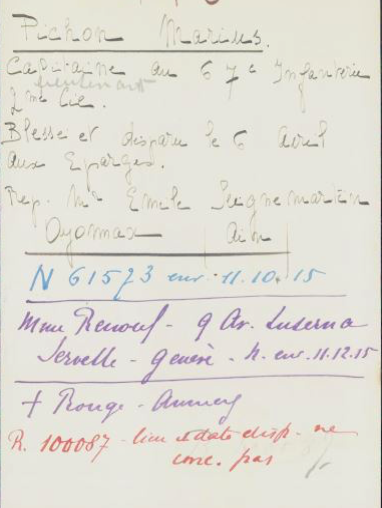 Pichon Marius.
Capitaine au 67e Infanterie
2me Cie.
Blessé et disparu le 6 Avril
aux Eparges.
Rep. Mr Emile Seignemartin
Oyonnax Ain
N 61573 env. 11.10.15
Mme Renouf - 9 Av. Luserna
Servette - Genève - N. env. 11.12.15
+ Rouge - Annecy
R. 100087 - lieu et date disp. ne
conc. pas